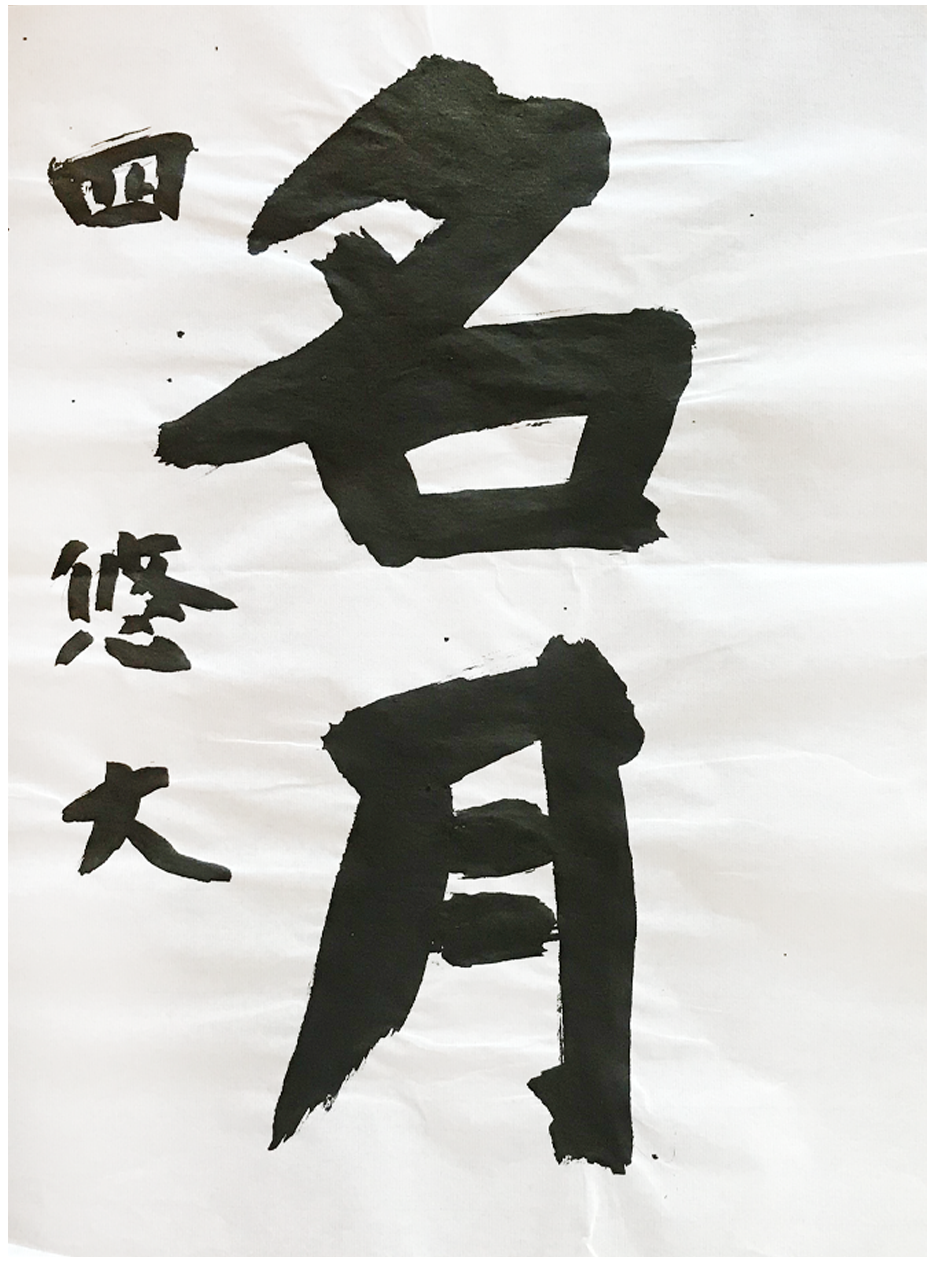 名月
四 悠大